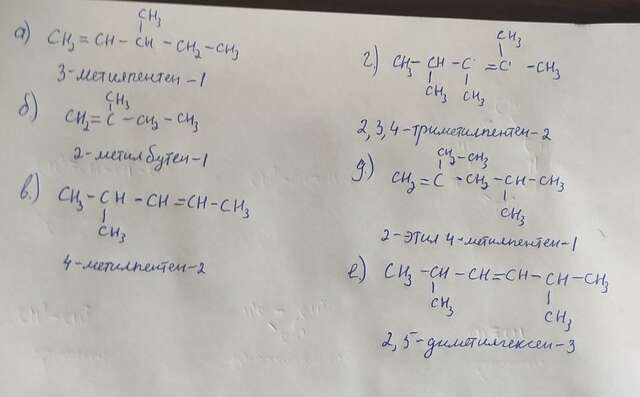 CH₃
а) CH₂ = CH – CH – CH₂ – CH₃
3-метилпентен-1
CH₃
б) CH₂ = C – CH₂ – CH₃
2-метилбутен-1
в.) CH₃ – CH – CH = CH – CH₃
CH₃
4-метилпентен-2
CH₃
г.) CH₃ – CH – C = C – CH₃
CH₃ CH₃
2,3,4-триметилпентен-2
CH₂ – CH₃
д.) CH₂ = C – CH₂ – CH – CH₃
CH₃
2-этил 4-метилпентен-1
е.) CH₃ – CH – CH = CH – CH – CH₃
CH₃ CH₃
2,5-диметилгексен-3